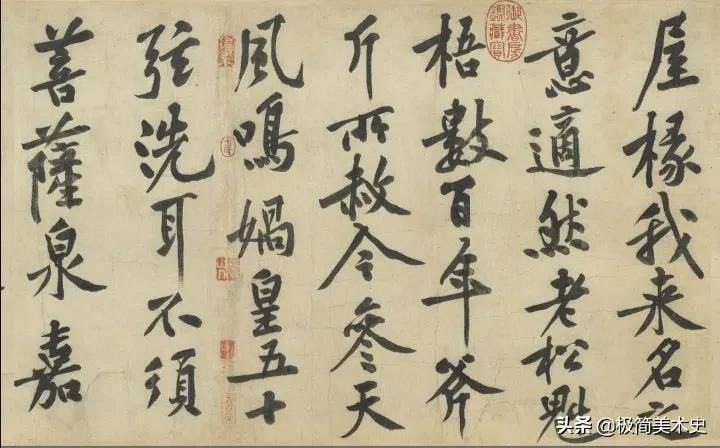 屋椽我來名之
意適然老松魁
梧數百年斧
斤所赦今參天
風鳴媧皇五十
弦洗耳不須
菩薩泉嘉
御書房鑑藏寶
头条 @极简美术史